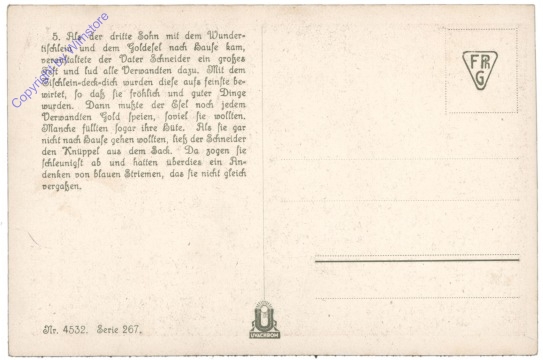 5. Als der dritte Sohn mit dem Wunder-
tischlein und dem Goldesel nach Hause kam,
veranstaltete der Vater Schneider ein großes
Fest und lud alle Verwandten dazu. Mit dem
Tischlein-deck-dich wurden diese aufs feinste be-
wirtet, so daß sie fröhlich und guter Dinge
wurden. Dann mußte der Esel noch jedem
Verwandten Gold speien, soviel sie wollten.
Manche füllten sogar ihre Hüte. Als sie gar
nicht nach Hause gehen wollten, ließ der Schneider
den Knüppel aus dem Sack. Da zogen sie
schleunigst ab und hatten überdies ein An-
denken von blauen Striemen, das sie nicht gleich
vergaßen.
Nr. 4532. Serie 267.
U
UVACHROM
FPR
G
Copyright by Wilnstore